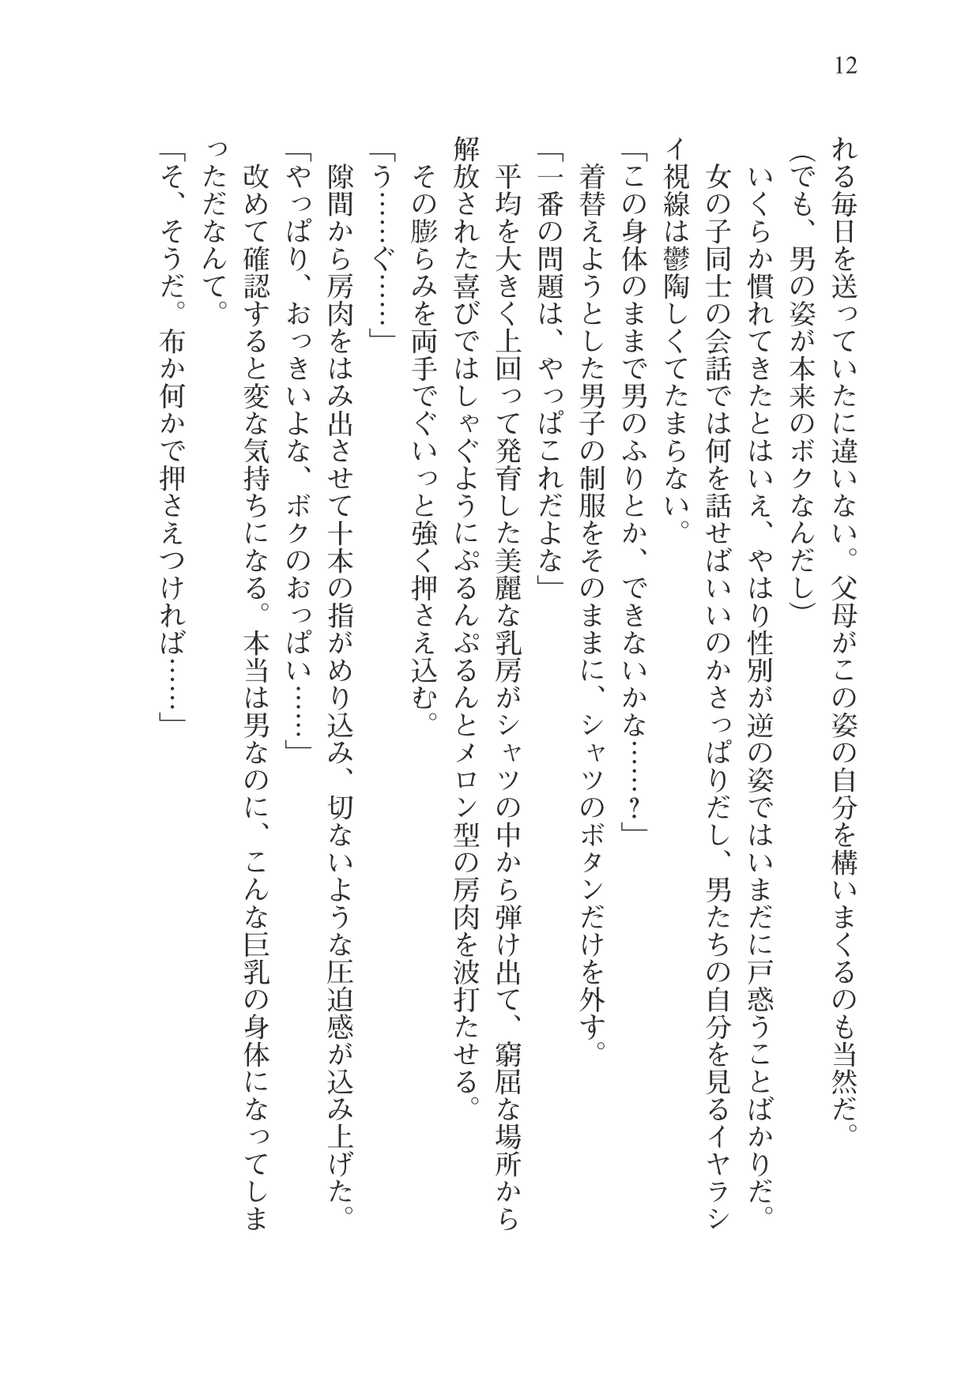 12
れる毎日を送っていたに違いない。父母がこの姿の自分を構いまくるのも当然だ。
(でも、男の姿が本来のボクなんだし)
いくらか慣れてきたとはいえ、やはり性別が逆の姿ではいまだに戸惑うことばかりだ。
女の子同士の会話では何を話せばいいのかさっぱりだし、男たちの自分を見るイヤラシ
イ視線は鬱陶しくてたまらない。
「この身体のままで男のふりとか、できないかな……?」
着替えようとした男子の制服をそのままに、シャツのボタンだけを外す。
「一番の問題は、やっぱこれだよな」
平均を大きく上回って発育した美麗な乳房がシャツの中から弾け出て、窮屈な場所から
解放された喜びではしゃぐようにぷるんぷるんとメロン型の房肉を波打たせる。
その膨らみを両手でぐいっと強く押さえ込む。
「う……ぐ……」
隙間から房肉をはみ出させて十本の指がめり込み、切ないような圧迫感が込み上げた。
「やっぱり、おっきいよな、ボクのおっぱい……」
改めて確認すると変な気持ちになる。本当は男なのに、こんな巨乳の身体になってしま
っただなんて。
「そ、そうだ。布か何かで押さえつければ……」